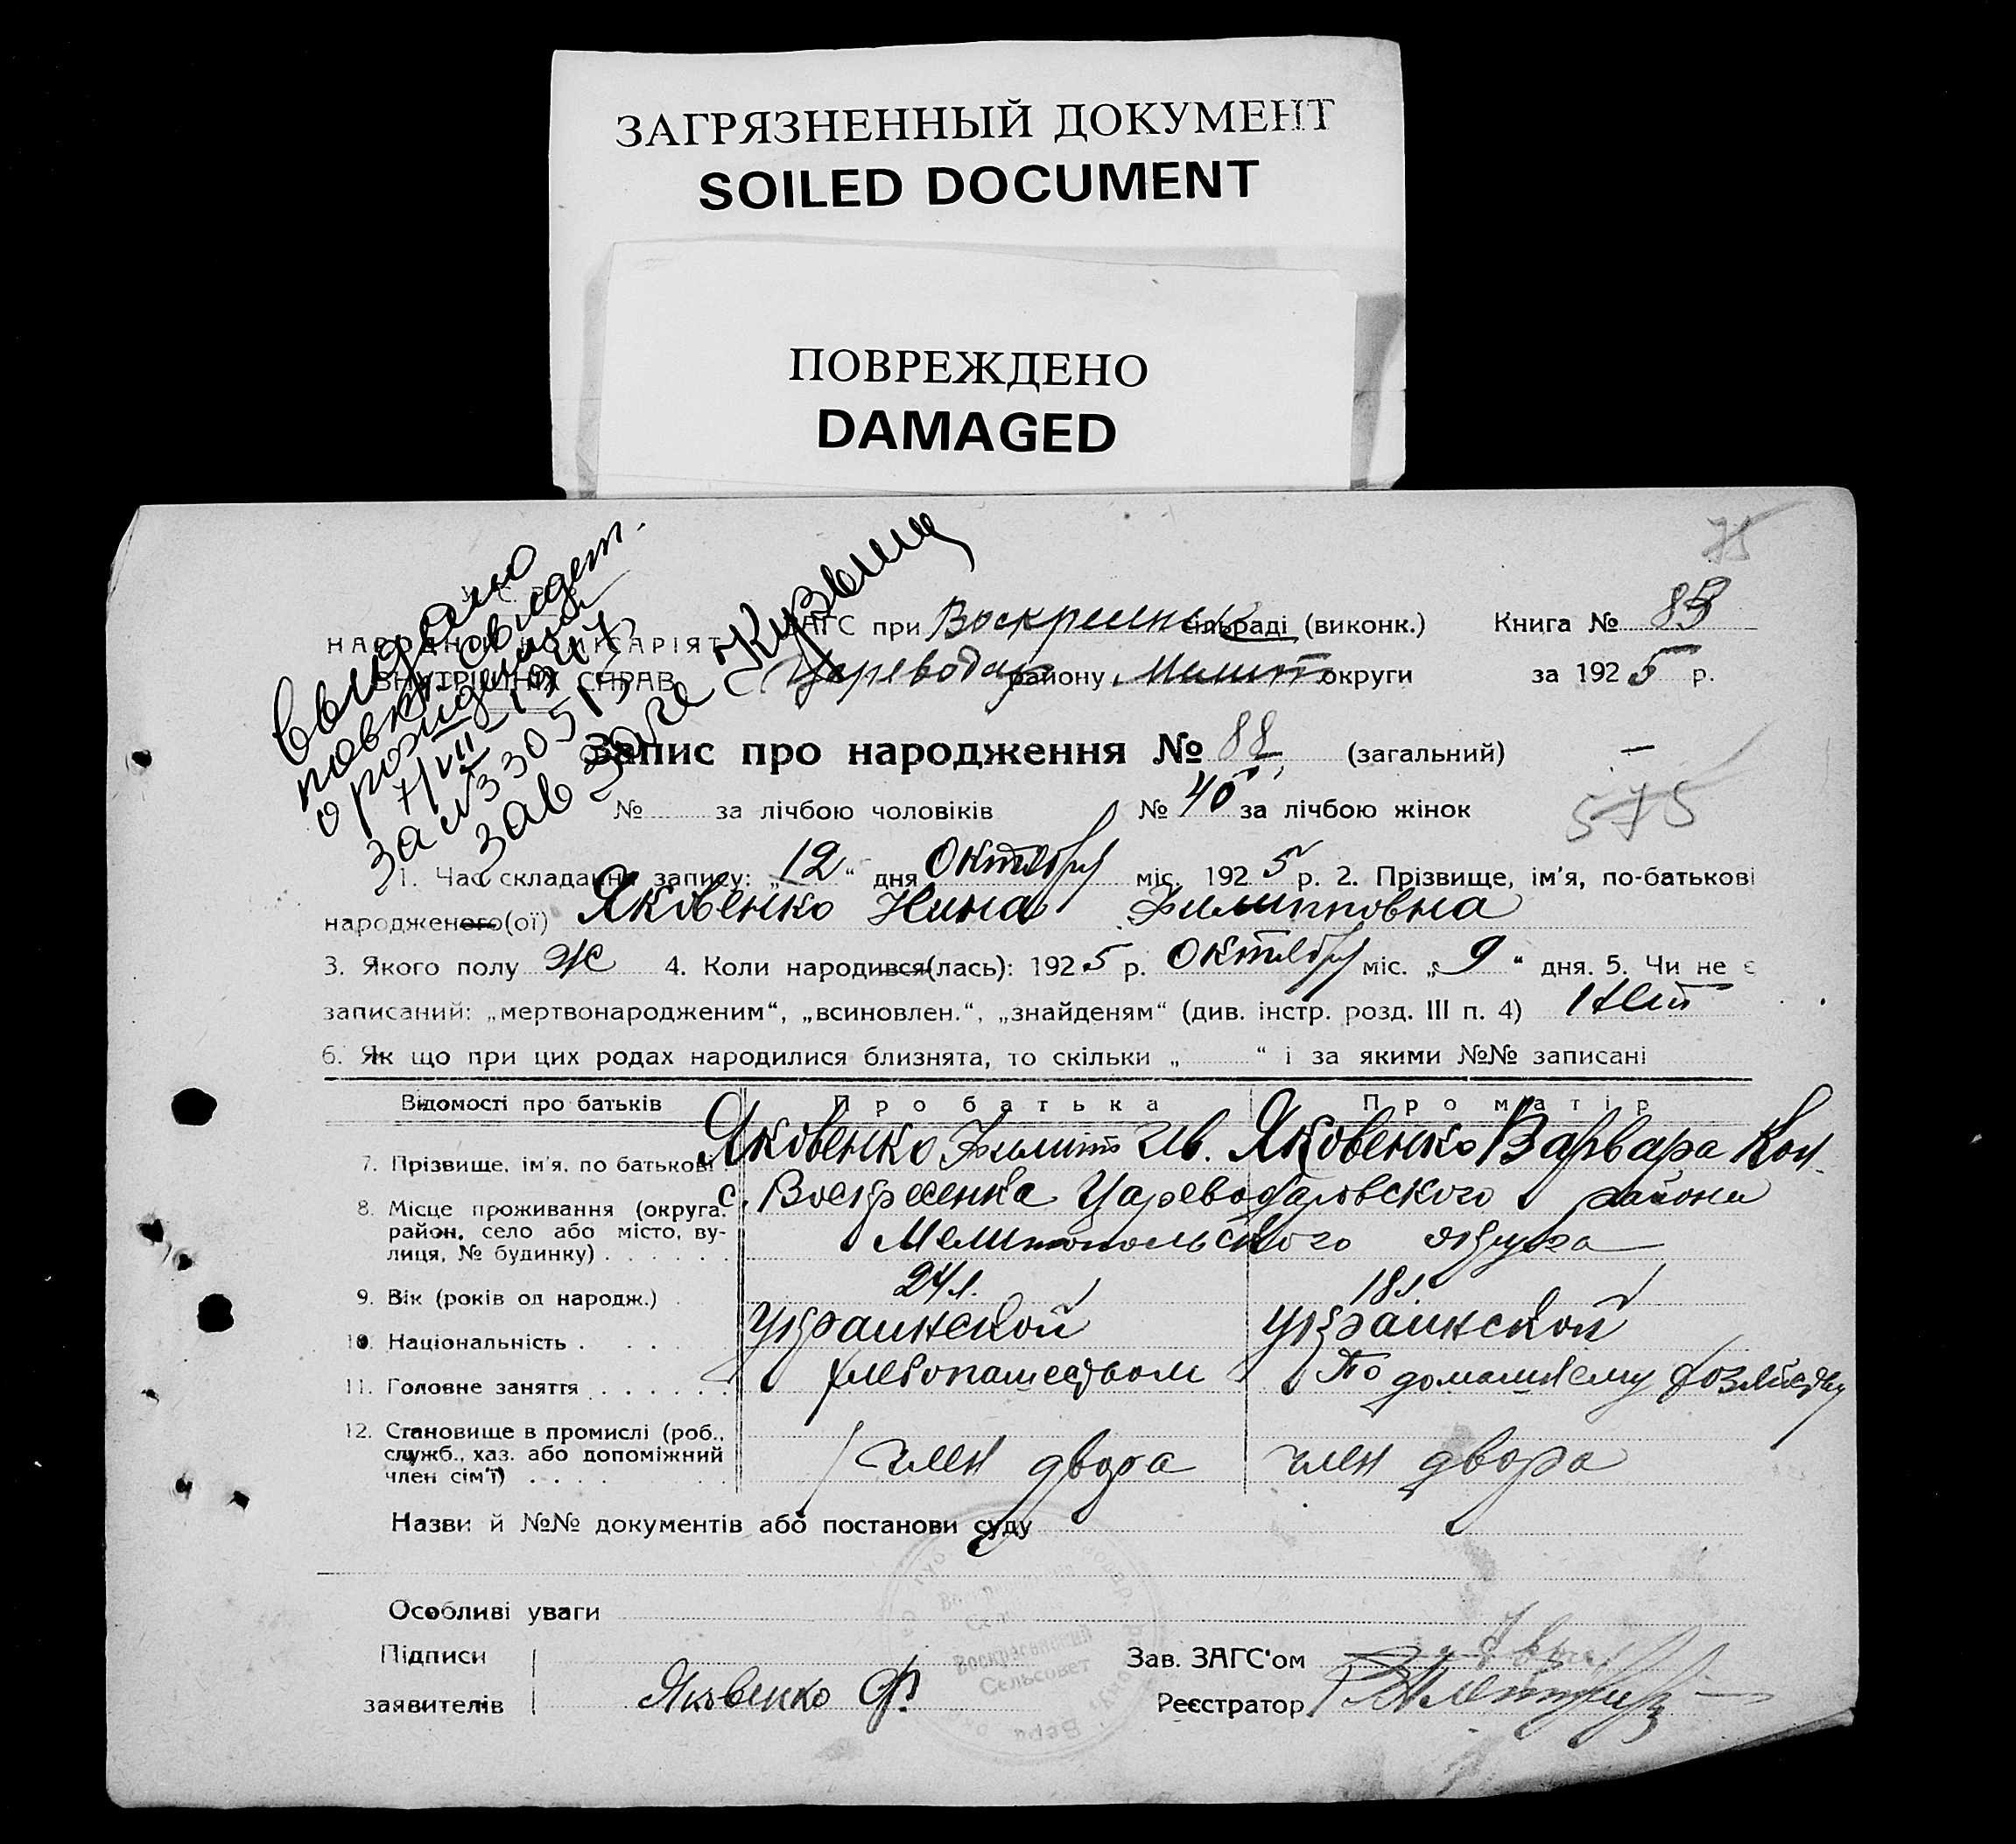 ЗАГРЯЗНЕННЫЙ ДОКУМЕНТ
SOILED DOCUMENT
ПОВРЕЖДЕНО
DAMAGED
75
выдано
повт. свидет.
о рождении
7/VII
за № 330513
зав Загса Кузьмин
НАРОДНОЙ КОМІСАРІЯТ
ВНУТРІШНІХ СПРАВ
ЗАГС при Воскресенской сільраді (виконк.) Книга №
Цареводар району Мелит округи за 1925 р.
Запис про народження № 88 (загальний) —
№ за лічбою чоловіків № 40 за лічбою жінок
575
1. Час складання запису: „12“ дня Октября міс. 1925 р. 2. Прізвище, ім'я, по-батькові
народженого(ої) Яковенко Нина Филипповна
3. Якого полу Ж 4. Коли народився(лась): 1925 р. Октября міс. „9“ дня. 5. Чи не є
записаний: „мертвонародженим“, „всиновлен.“, „знайденям“ (див. інстр. розд. III п. 4) Нет
6. Як що при цих родах народилися близнята, то скільки „ “ і за якими №№ записані
Відомості про батьків Про батька Про матір
7. Прізвище, ім'я, по батькові Яковенко Филипп Ив. Яковенко Варвара Кон.
8. Місце проживання (округа, район, село або місто, вулиця, № будинку) с. Воскресенка Цареводаровского района
Мелитопольского округа
9. Вік (років од народж.) 24 л. 18 л.
10. Національність Украинской Украинской
11. Головне заняття хлебопашеством По домашнему хозяйству
12. Становище в промислі (роб.,
служб., хаз. або допоміжний
член сім'ї) член двора член двора
Назви й №№ документів або постанови суду
Особливі уваги
Воскресенский
Сельсовет
Підписи Зав. ЗАГС'ом
заявителів Яковенко Ф. Реєстратор